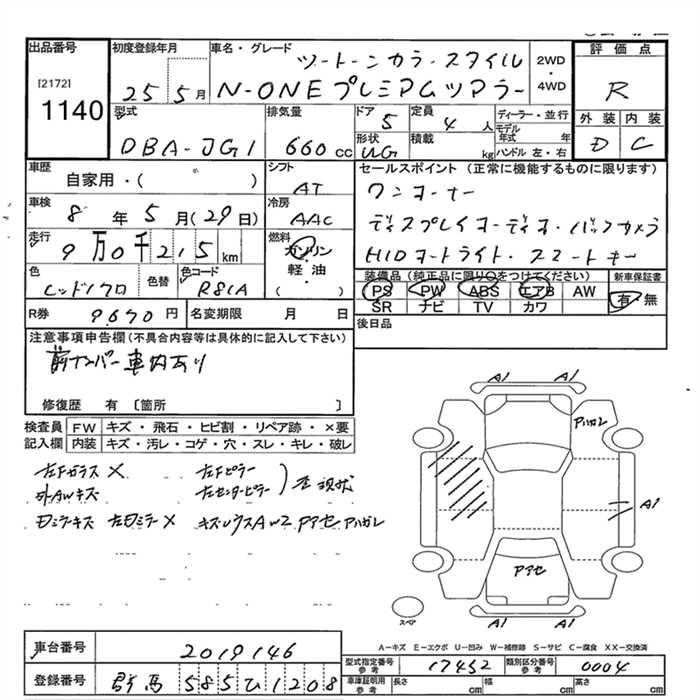 出品番号
[2172]
1140
初度登録年月
25 5月
車名・グレード
ツートーンカラースタイル
N-ONEプレミアムツアラー
2WD
・
4WD
評価点
R
外装 内装
D C
型式
DBA-JG1
排気量
660 cc
ドア
5
定員
4 人
形状
UG
積載
kg
ディーラー・並行
モデル年式 年
ハンドル 左・右
車歴
自家用・( )
シフト
AT
車検
8年5月(29日)
冷房
AAC
走行
9万0千215km
燃料
ガソリン
軽油
( )
色
レッド/クロ
色替
色コード
R81A
R券 9,690円
名変期限 月 日
セールスポイント (正常に機能するものに限ります)
ワンオーナー
ディスプレイオーディオ・バックカメラ
HIDオートライト・スマートキー
装備品 (純正品に限り○をつけてください)
PS PW ABS エアB AW
SR ナビ TV カワ
新車保証書
有・無
後日品
注意事項申告欄(不具合内容等は具体的に記入して下さい)
前ナンバー車内あり
修復歴 有 〔箇所 〕
検査員記入欄
FW キズ・飛石・ヒビ割・リペア跡・×要
内装 キズ・汚レ・コゲ・穴・スレ・キレ・破レ
左Fガラス X 左Fピラー
外AWキズ 左センターピラー
現状
左ドミラー X キズ W2 アハガレ
A1 A1
アハガレ
A1
A1 A1
スペア
A-キズ E-エクボ U-凹み W-補修跡 S-サビ C-腐食 XX-交換済
車台番号 2019146
登録番号 群馬 585ひ1208
型式指定番号 参考 17452
類別区分番号 参考 0004
車庫証明用 参考 長さ cm 幅 cm 高さ cm